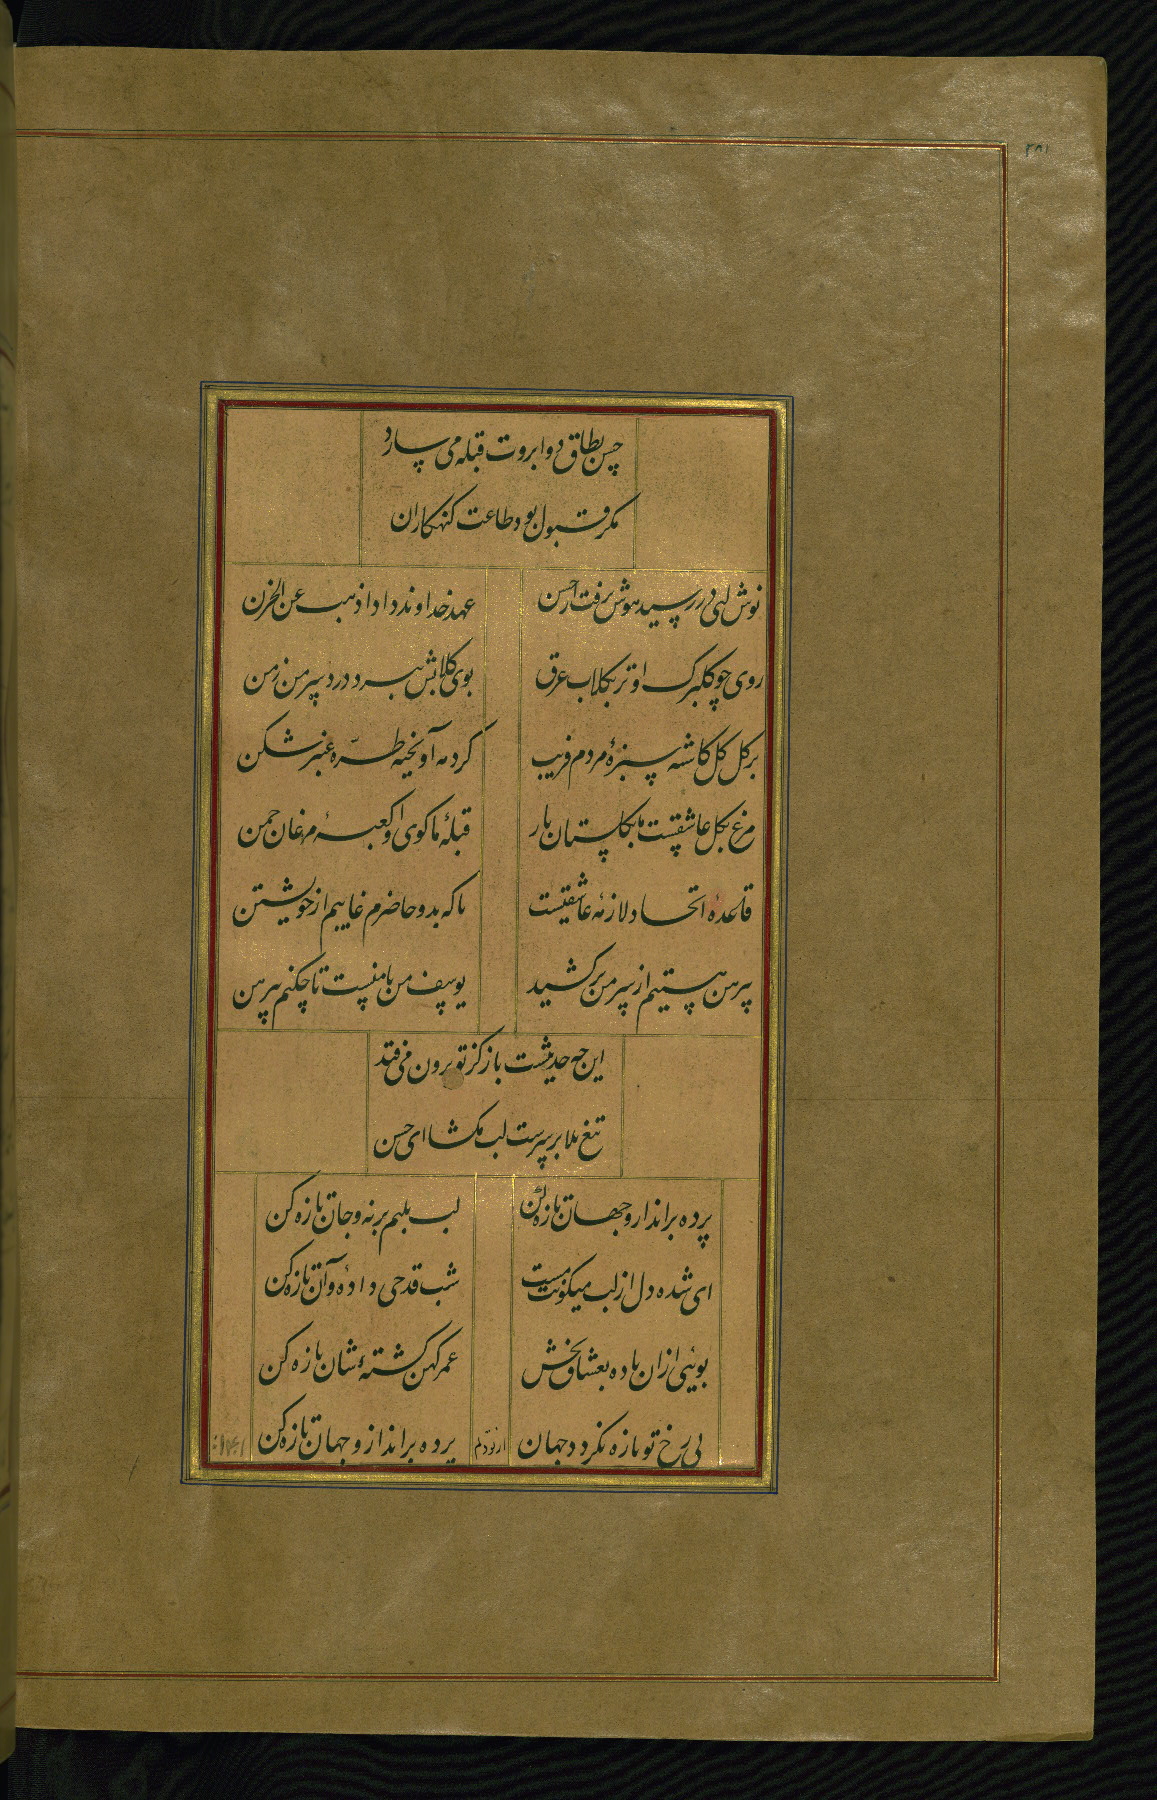 ۲۸۱
حسن بطاق دو ابروت قبله می سازد
مکر قبول بود طاعت کنهکاران
نوش لبی در رسید هوش برفت از حسن
عهد خداوند داد اذهب عن الحزن
روی چو کلبرک او تر بکلاب عرق
بوی کلابش ببرد درد سر من ز من
بر کل کل کاشته سبزهٔ مردم فریب
کرد مه آویخته طره عنبر شکن
مرغ بکل عاشقست ما بکلستان یار
قبلهٔ ما کوی او کعبهٔ مرغان چمن
قاعدهٔ اتحاد لازمهٔ عاشقیست
ما که بدو حاضریم غایبیم از خویشتن
پیرهن هستیم از سر من برکشید
یوسف من با منست تا چکنم پیرهن
این چه حدیثست باز کز تو برون می فتد
تیغ بلا بر سرست لب مکشا ای حسن
پرده برانداز و جهان تازه کن
لب بلبم بر نه و جان تازه کن
ای شده دل از لب میکونت مست
شب قدحی دادهٔ و آن تازه کن
بوئی ازان باده بعشاق بخش
عمر کهن کشتهٔ شان تازه کن
بی رخ تو تازه نکردد جهان
پرده برانداز و جهان تازه کن